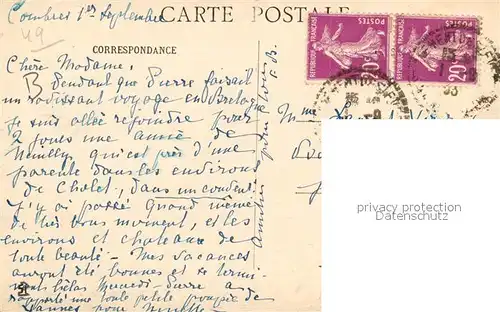 Combrée 1er Septembre
49
CARTE POSTALE
CORRESPONDANCE
Chère Madame,
Pendant que Pierre faisait
un ravissant voyage en Bretagne
je suis allée rejoindre pour
2 jours une amie de
Neuilly qui est près d'une
parente dans les environs
de Cholet, dans un couvent
J'y ai passé quand même
de très bons moment, et les
environs et chateaux de
toute beauté - Mes vacances
auront été bonnes et se termi-
nent hélas Mercredi - Pierre a
rapporté une toute petite poupée de
Vannes pour
Amitiés pour vous
POSTES
RÉPUBLIQUE FRANÇAISE
20c
POSTES
RÉPUBLIQUE FRANÇAISE
20c
Mme
privacy protection
Datenschutz